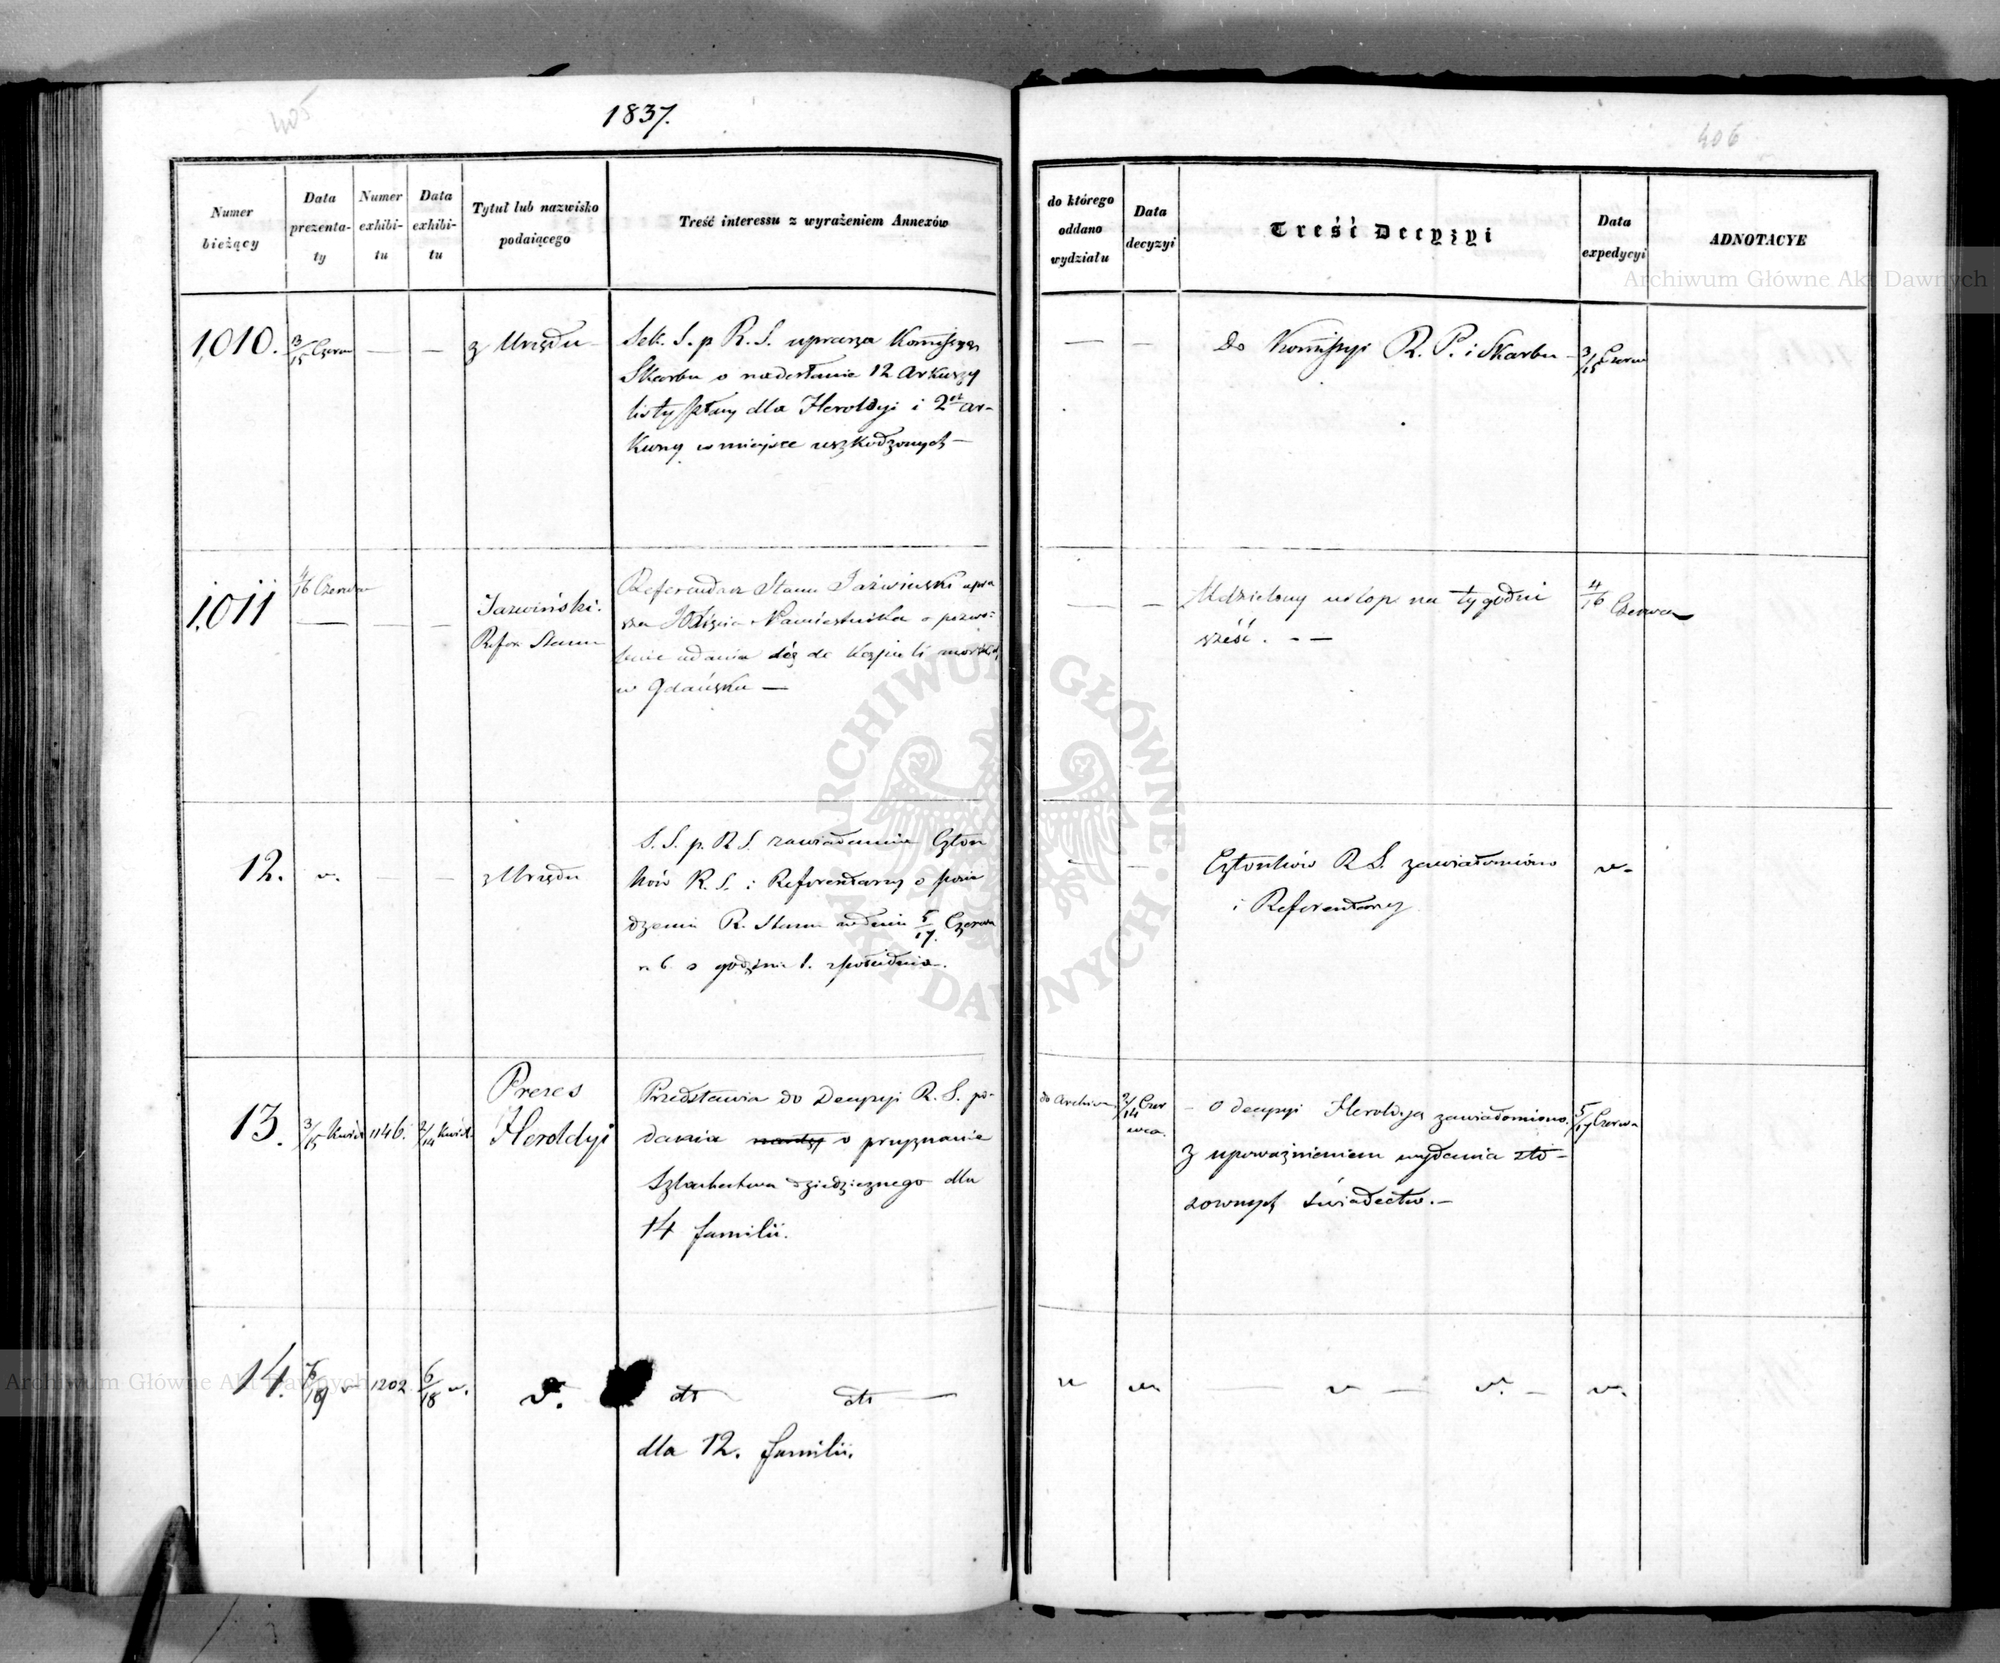 405
1837.
406
Numer bieżący
Data prezentaty
Numer exhibitu
Data exhibitu
Tytuł lub nazwisko podaiącego
Treść interessu z wyrażeniem Annexów
do którego oddano wydziału
Data decyzyi
Treść Decyzyi
Data expedycyi
ADNOTACYE
1,010.
3/15 Czerw
— —
z Urzędu
Sek. S. p R. S. uprasza Kommissyą
Skarbu o nadesłanie 12 arkuszy
dla Heroldyi i 2ch ar-
kuszy w miejsce uszkodzonych —
— —
Do Kommissyi R. P. i Skarbu —
3/15 Czerw
1,011
4/16 Czerwca
— — —
Jazwiński.
Refer. Stanu
Referendarz Stanu Jaźwiński upra
sza Xięcia Namiestnika o pozwo-
lenie udania się do kąpieli morskich
w Gdańsku —
— —
Udzielony urlop na tygodni
sześć. - —
4/16 Czerwca
12.
v.
— —
z Urzędu
S. S. p. R S. zawiadamia Człon
ków R. S. i Referendarzy o posie
dzeniu R. Stanu w dniu 5/17. Czerwca
r. b. o godzinie 1. z południa.
— —
Członków R S. zawiadomiono
i Referendarzy
v.
13.
3/15 Kwiet
1146.
2/14 Kwiet.
Prezes
Heroldyi
Przedstawia do Decyzyi R. S. po-
dania o przyznanie
Szlachectwa dziedzicznego dla
14 familii.
do Archiwu
2/14 Czer
wca.
- o decyzyi Heroldyą zawiadomiono
z upoważnieniem wydania sto-
sownych świadectw. —
5/17 Czerwca
14.
7/19 v
1202
6/18 v.
v.
dto dto —
dla 12. familii.
v
v.
— v — v. —
v.
Archiwum Główne Akt Dawnych
ARCHIWUM GŁÓWNE AKT DAWNYCH
Archiwum Główne Akt Dawnych